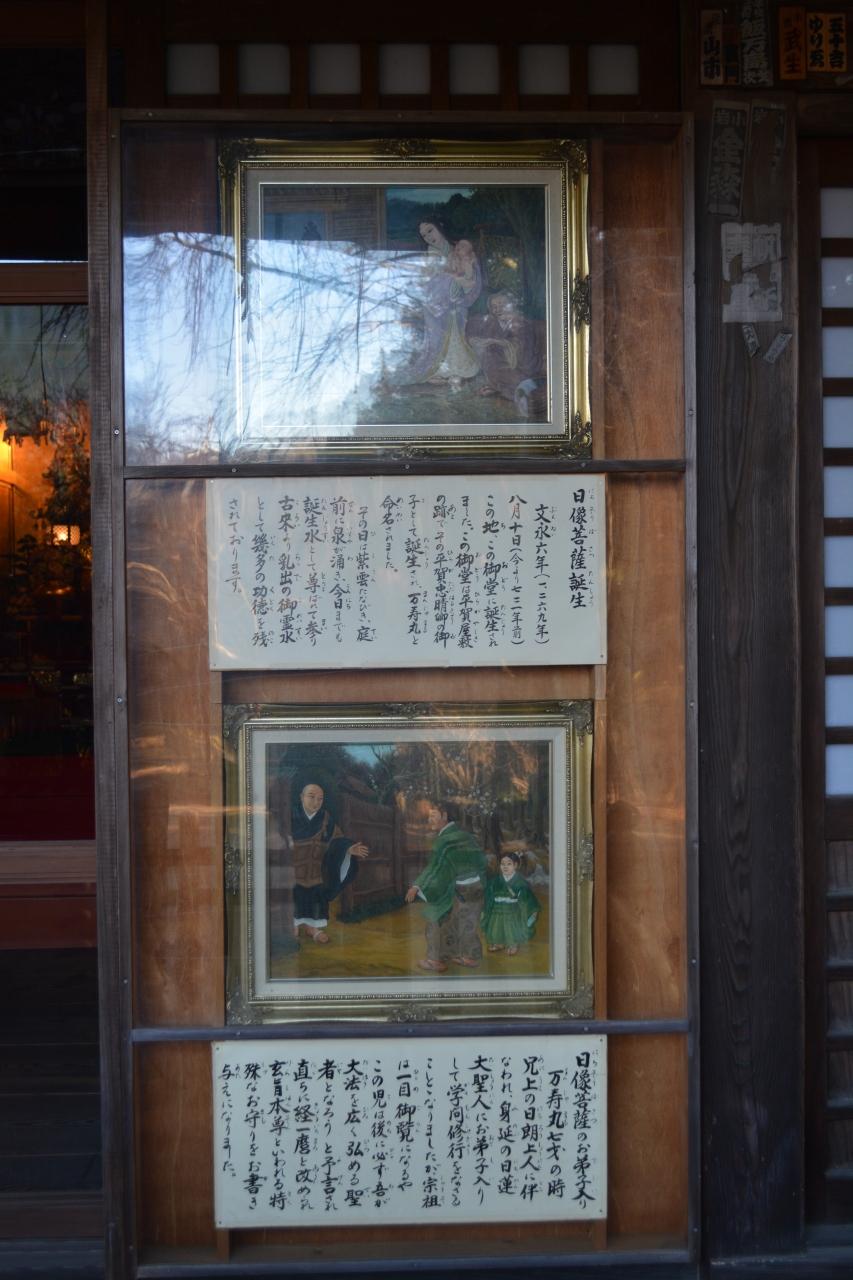 日像菩薩誕生
文永六年(一二六九年)
八月十日(今より七二一年前)
この地、この御堂に誕生され
ました。この御堂は平賀屋敷
の跡で その平賀忠晴卿の御
子として誕生され 万寿丸と
命名されました。
その日は紫雲たなびき、庭
前に泉が涌き、今日までも
誕生水として尊ばれて参り
古来より乳出の御霊水
として幾多の功徳を残
されております。
日像菩薩のお弟子入り
万寿丸七才の時
兄上の日朗上人に伴
なわれ、身延の日蓮
大聖人にお弟子入り
して学問修行をなさる
ことになりましたが宗祖
は一目御覧になるや
この児は後に必ず吾が
大法を広く弘める聖
者となろうと予言され
直ちに経一麿と改められ
玄旨本尊といわれる特
殊なお守りをお書き
与えになりました。